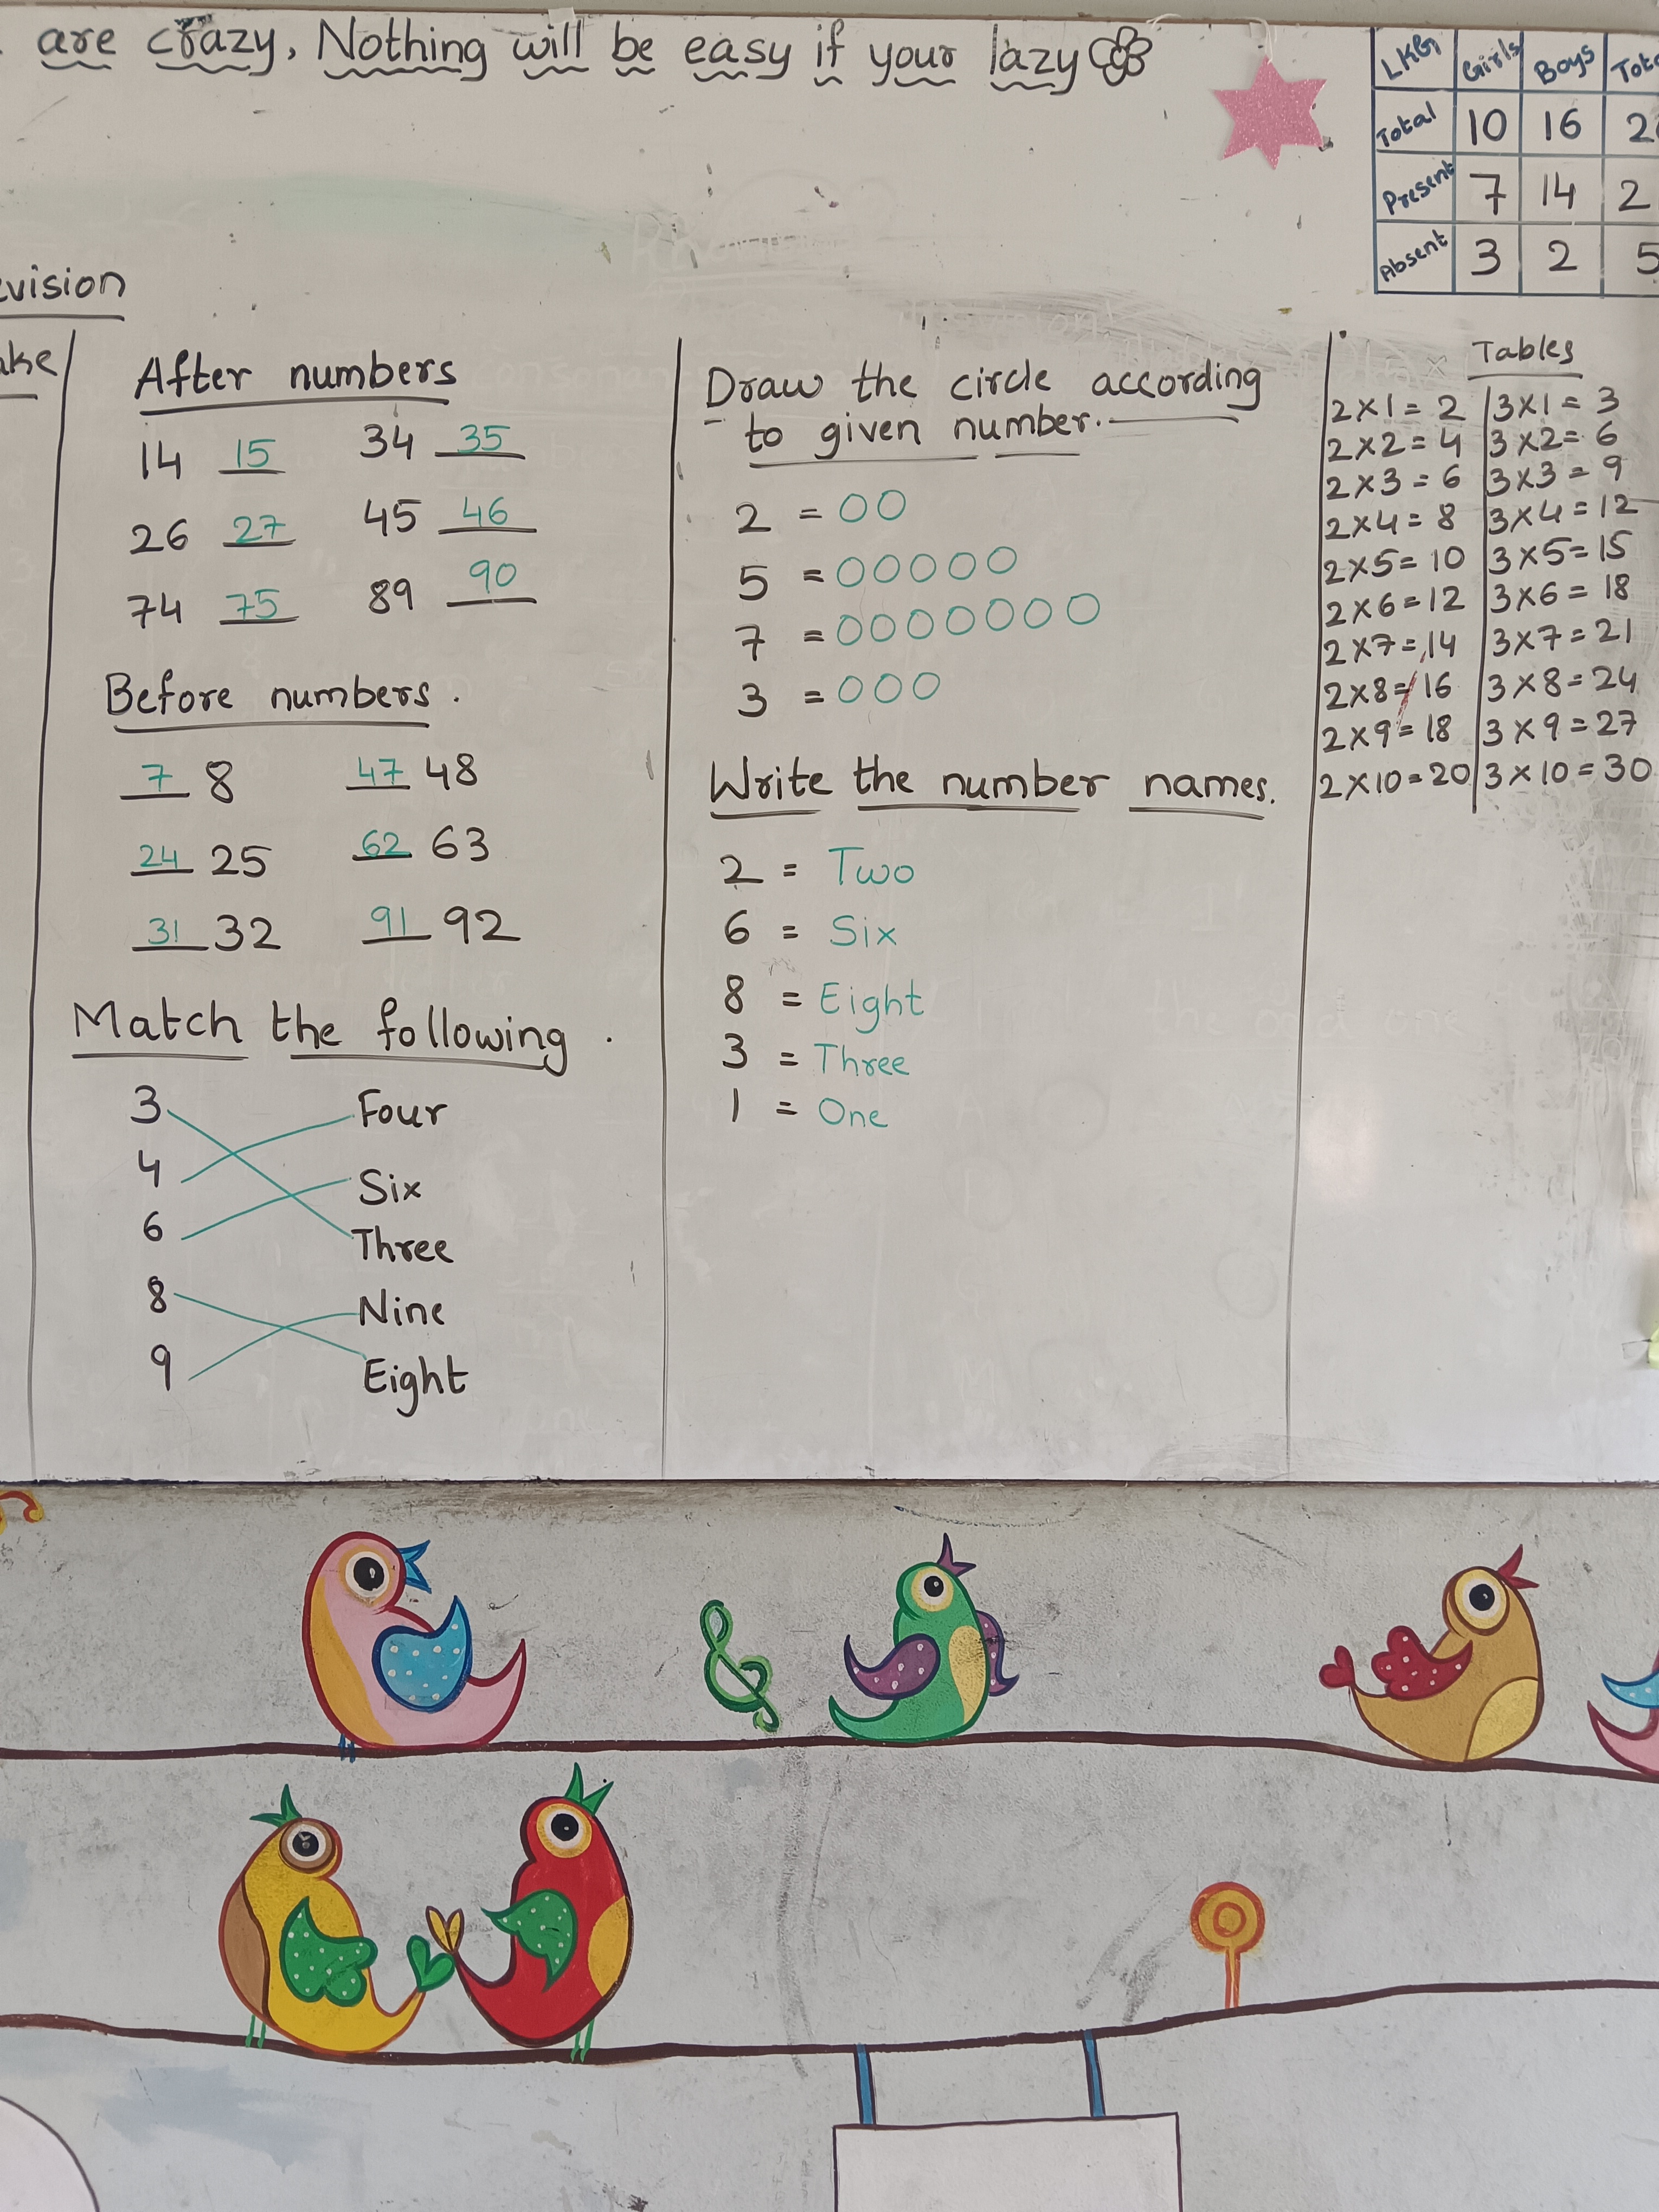 are crazy, Nothing will be easy if your lazy
LKG Girls Boys
Total 10 16
Present 7 14
Absent 3 2 5
After numbers
14 15 34 35
26 27 45 46
74 75 89 90
Before numbers.
7 8 47 48
24 25 62 63
31 32 91 92
Match the following.
3 Four
4 Six
6 Three
8 Nine
9 Eight
Draw the circle according
to given number.
2 = OO
5 = OOOOO
7 = OOOOOOO
3 = OOO
Write the number names.
2 = Two
6 = Six
8 = Eight
3 = Three
1 = One
Tables
2×1=2 3×1=3
2×2=4 3×2=6
2×3=6 3×3=9
2×4=8 3×4=12
2×5=10 3×5=15
2×6=12 3×6=18
2×7=14 3×7=21
2×8=16 3×8=24
2×9=18 3×9=27
2×10=20 3×10=30